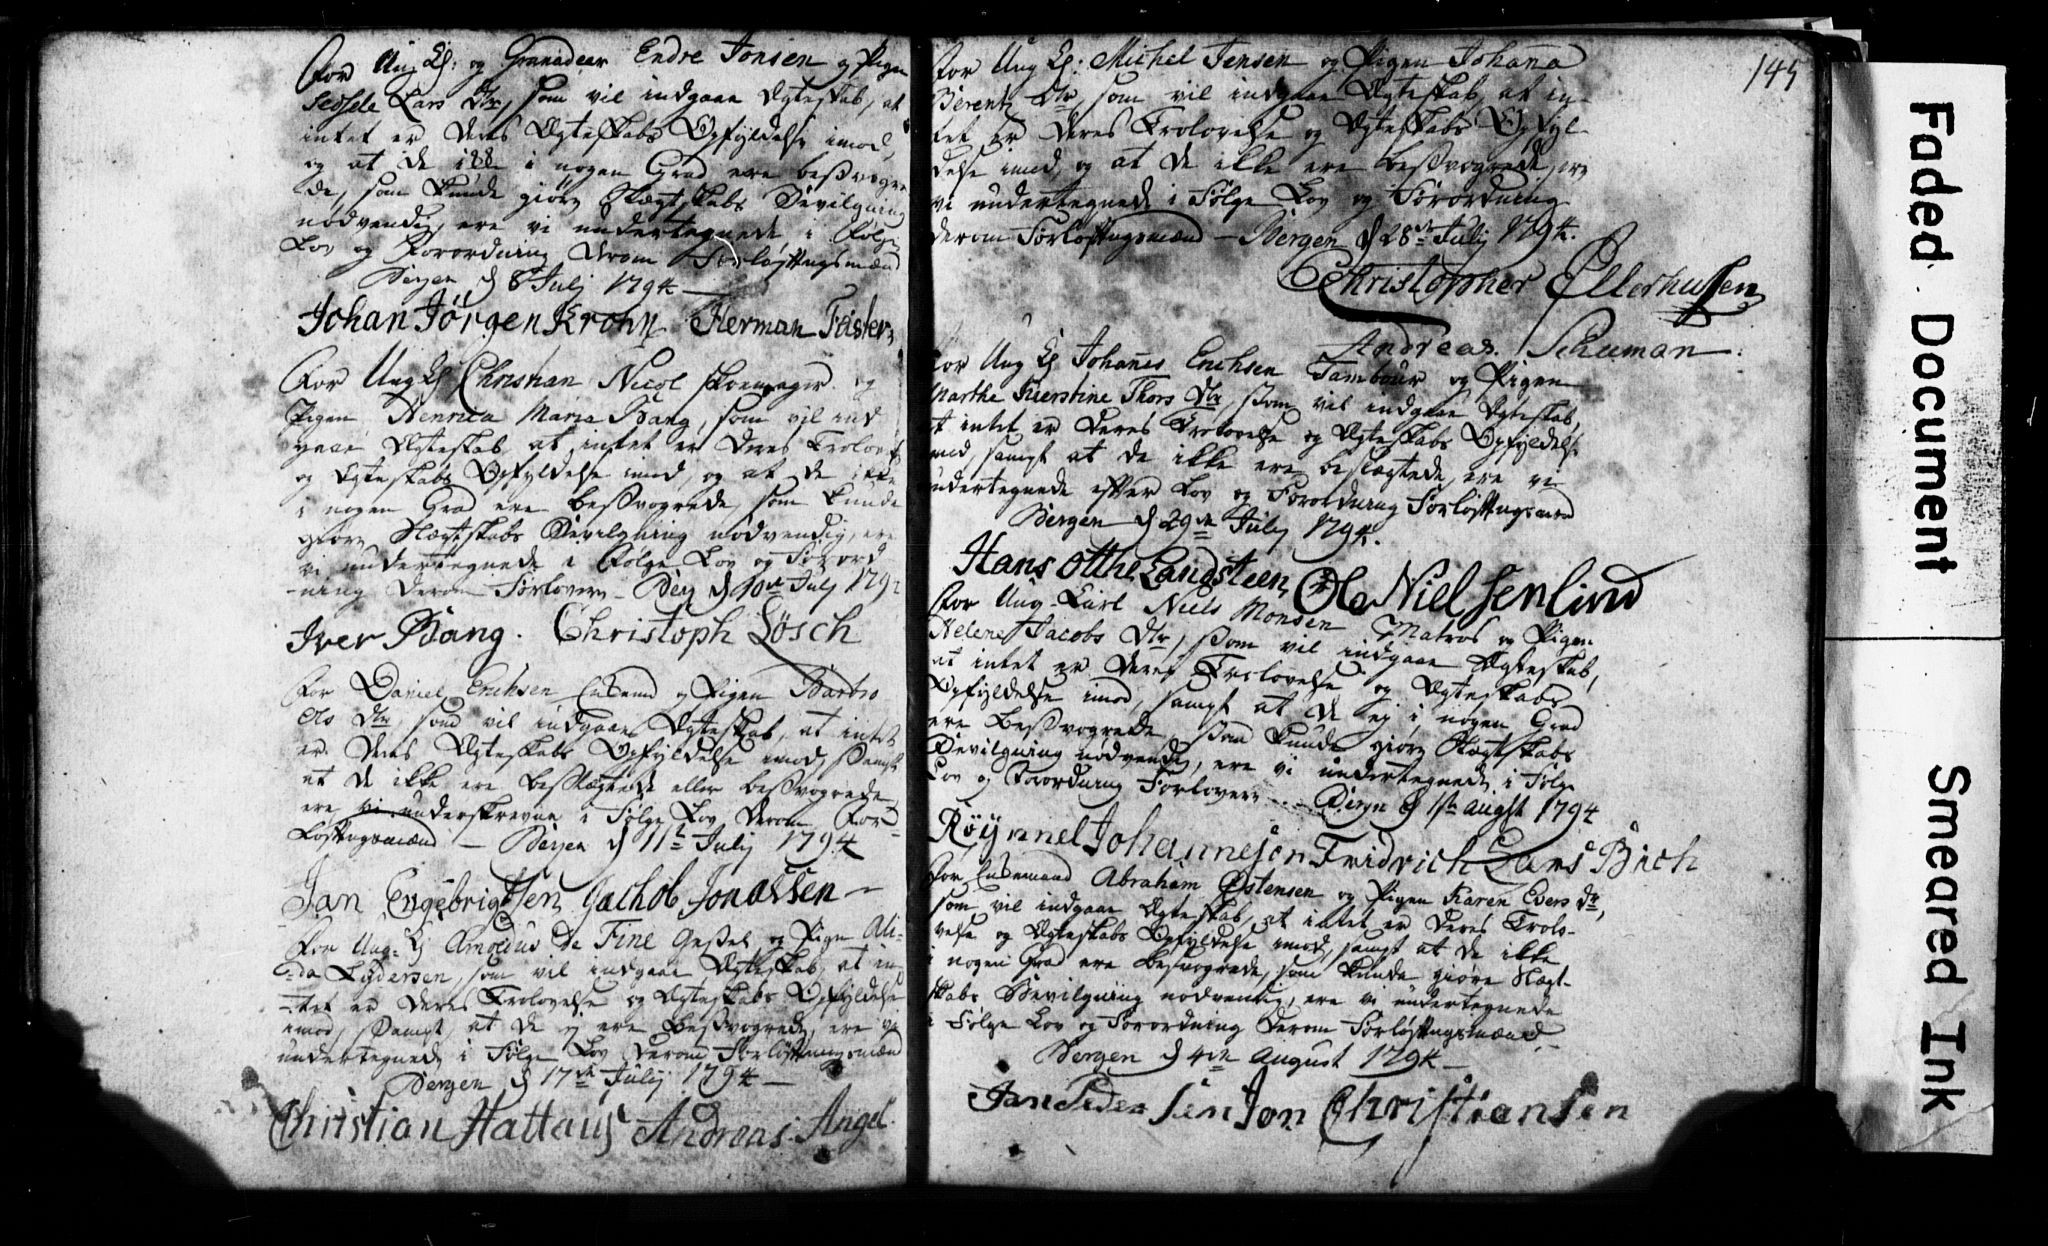 For Ung K: og Granadeer Endre Jonsen og Pigen
Lars Dtr, som vil indgaae Ægteskab, at
intet er deres Ægteskabs Opfyldelse imod,
og at de ikke i nogen Grad ere besvogre
de, som kunde giøre Slægtskabs Bevilgning
nødvendig, ere vi undertegnede i Følge
Lov og Forordning derom Forløftngsmænd
Bergen d 8 Julj 1794
Johan Jørgen Krohn Herman Faster
For Ung K Christian Nicol skoemager og
Pigen Henrica Maria Bang, som vil ind
gaae Ægteskab, at intet er deres Trolov
og Egteskabs Opfyldelse imod, og at de ikke
i nogen Grad ere besvogrede, som kunde
giøre Slægtskabs Bevilgning nødvendig, ere
vi undertegnede i Følge Lov og Forord
ning derom Forlovere Ber d 10de July 179
Iver Bang. Christoph Lösch
For Daniel Erichsen Enkemd og Pigen Barbro
Ols Dtr, som vil indgaae Ægteskab, at intet
er deres Ægteskabs Opfyldelse imod, samt
at de ikke ere beslægtede eller besvogrede
ere vi underskrevne i Følge Lov derom For
løftngsmænd Bergen d 11te Julij 1794
Jan Engebrigtsen Jachob Jonassen
For Ung K Arnoldus de Fine Gesel og Pige Ali-
da Lydersen, som vil indgaae Ægteskab, at in
tet er deres Trolovelse og Ægteskabs Opfyldelse
imod, samt, at de ej ere besvogrede, ere vi
undertegnede i Følge Lov derom Forløftningsmænd
Bergen d 17de Julij 1794
Christian Hattaug Andreas Angel.
145
For Ung K: Michel Jensen og Pigen Johana
Berents Dtr som vil indgaae Ægteskab, at in-
tet er deres Trolovelse og Ægteskabs Opfyl-
delse imod, og at de ikke ere besvogrede, ere
vi undertegnede i Følge Lov og Forordning
derom Forløftngsmænd - Bergen d 28de Julj 1794.
Christopher Ellerhusen
Andreas Schuman
For Ung K Johanes Erichsen Tambour og Pigen
Marthe Kierstine Thors Dtr som vil indgaae Ægteskab,
at intet er deres Trolovelse og Ægteskabs Opfyldelse
imod, samt at de ikke ere beslægtede, ere vi
undertegnede efter Lov og Forordning Forløftngsmænd
Bergen d 29de Julj 1794.
Hans Otthe Landsteen Ole Nielsen Lind
For Ung-Karl Niels Monsen Matros og Pigen
Helene Jacobs Dtr, som vil indgaae Ægteskab,
at intet er deres Trolovelse og Ægteskabs
Opfyldelse imod, samt at de ej i nogen Grad
ere besvogrede, som kunde giøre Slægtskabs
Bevilgning nødvendig, ere vi undertegnede i Følge
Lov og Forordning Forlovere - Bergen d 1ste augst 1794
Røynnel Johannesen Fridrich Lars Bich
For Enkemand Abraham Østensen og Pigen Karen Evers Dr,
som vil indgaae Ægteskab, at intet er deres Trolo-
velse og Ægteskabs Opfyldelse imod, samt at de ikke
i nogen Grad ere besvogrede, som kunde giøre Slægt-
skabs Bevilgning nødvendig, ere vi undertegnede
i Følge Lov og Forordning derom Forløftngsmænd
Bergen d 4de August 1794
Jan Pedersen Jon Christiansen
Faded Document
Smeared Ink